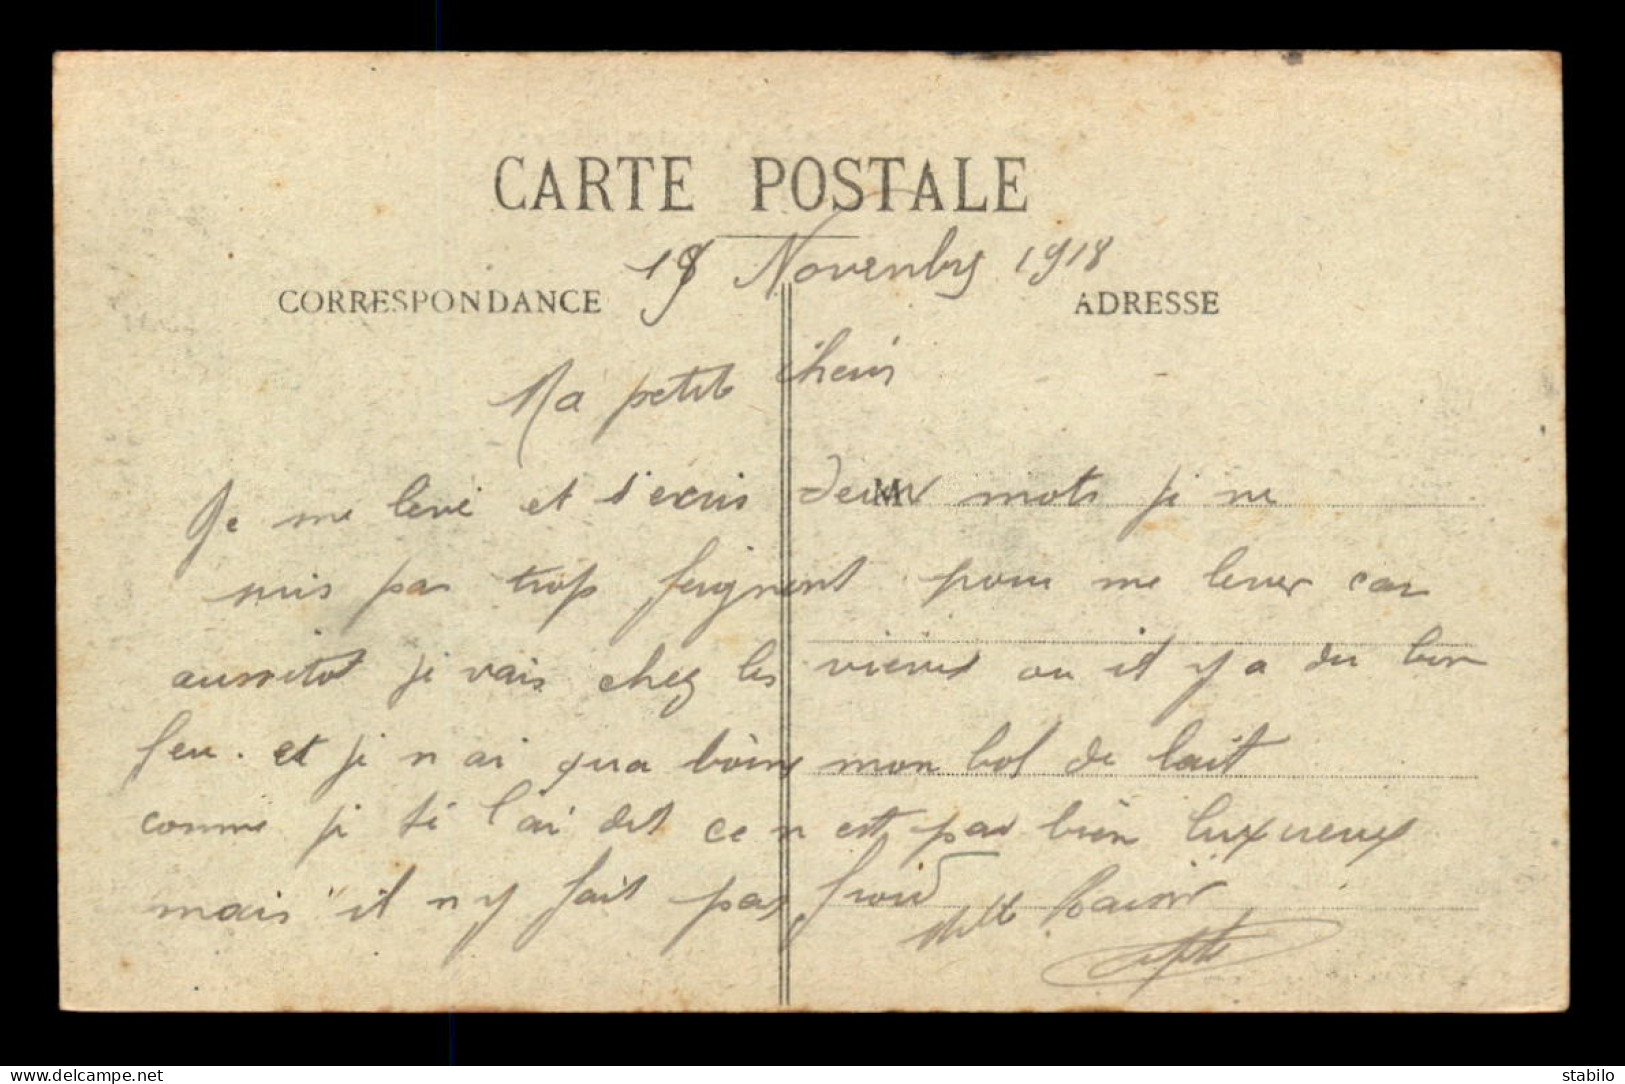 CARTE POSTALE
18 Novembre 1918
CORRESPONDANCE
ADRESSE
Ma petite chéris
Je me levé et t'ecris deux mots je ne
M
suis pas trop feignent pour me lever car
aussitot je vais chez les vieux ou il y a du bon
feu. et je n ai qua boire mon bol de lait
comme je te l'ai dit ce n est pas bien luxueux
mais il n y fait pas froid
Mille Baiser
delcampe.net
stabilo